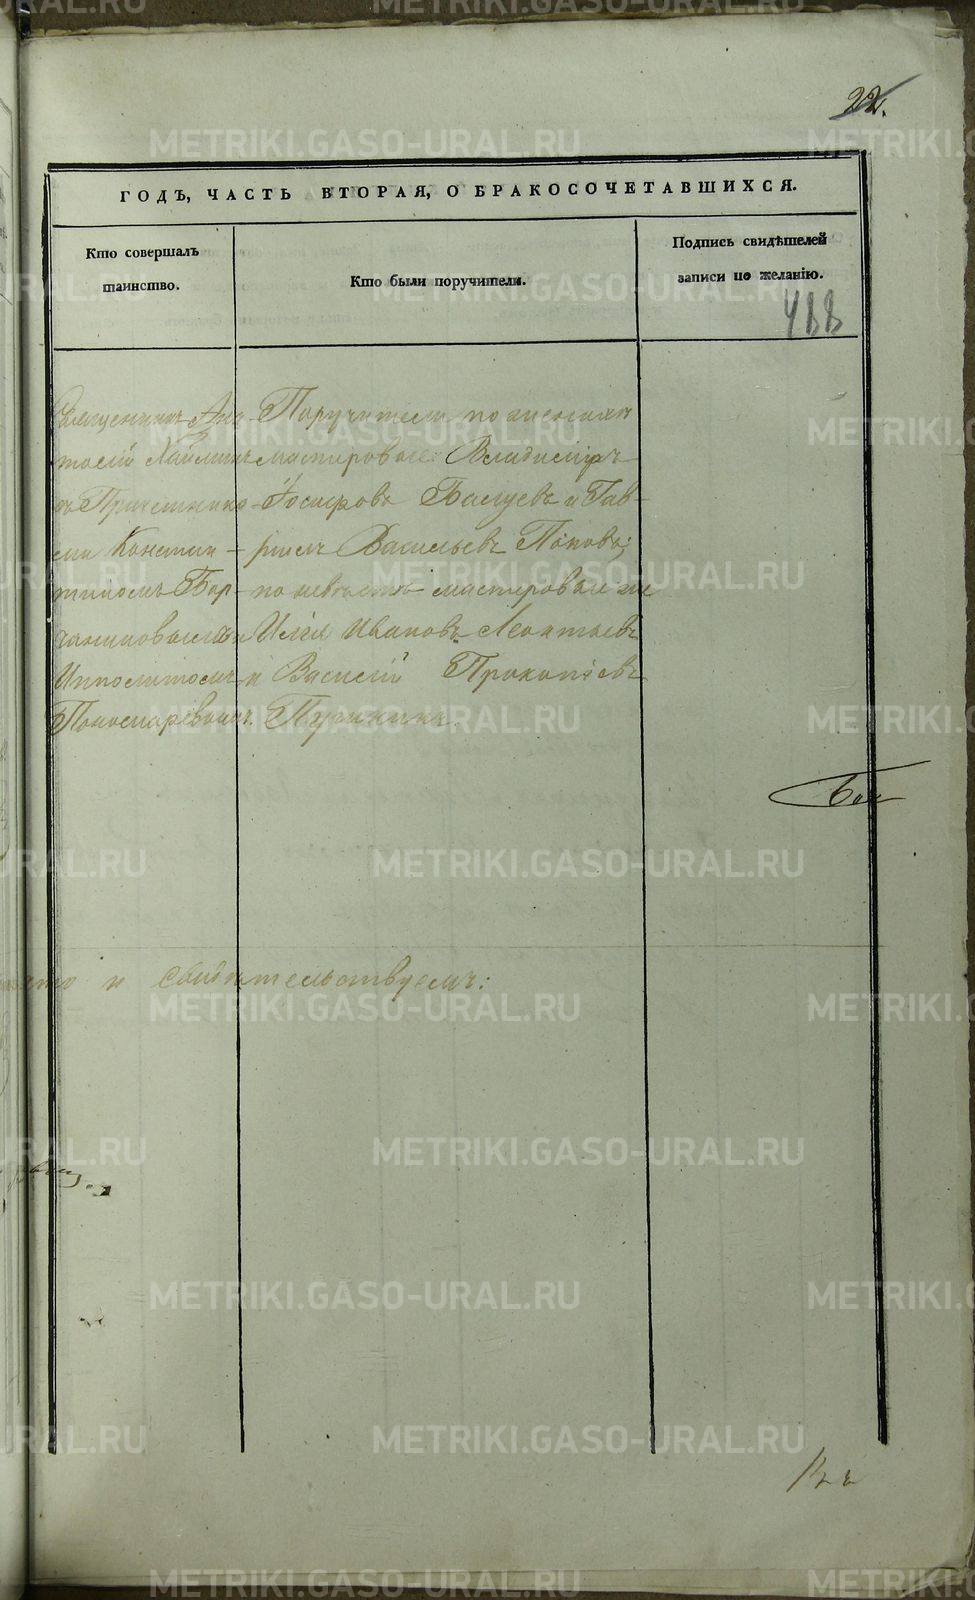 22.
ГОДЪ, ЧАСТЬ ВТОРАЯ, О БРАКОСОЧЕТАВШИХСЯ.
Кто совершалъ
таинство.
Кто были поручители.
Подпись свидѣтелей
записи по желанію.
488
Священникъ Ана-
толій
съ Причетника-
ми Констан-
тиномъ Бор-
чаниновымъ и
Ипполитомъ
Пономаревымъ.
Поручители по женихѣ
мастеровые: Владиміръ
Іосифовъ и Гав-
риилъ Васильевъ Поповъ;
по невѣстѣ мастеровые же
Илья Ивановъ Леонтьевъ
и Василій Прокопьевъ
и свидѣтельствуемъ:
METRIKI.GASO-URAL.RU